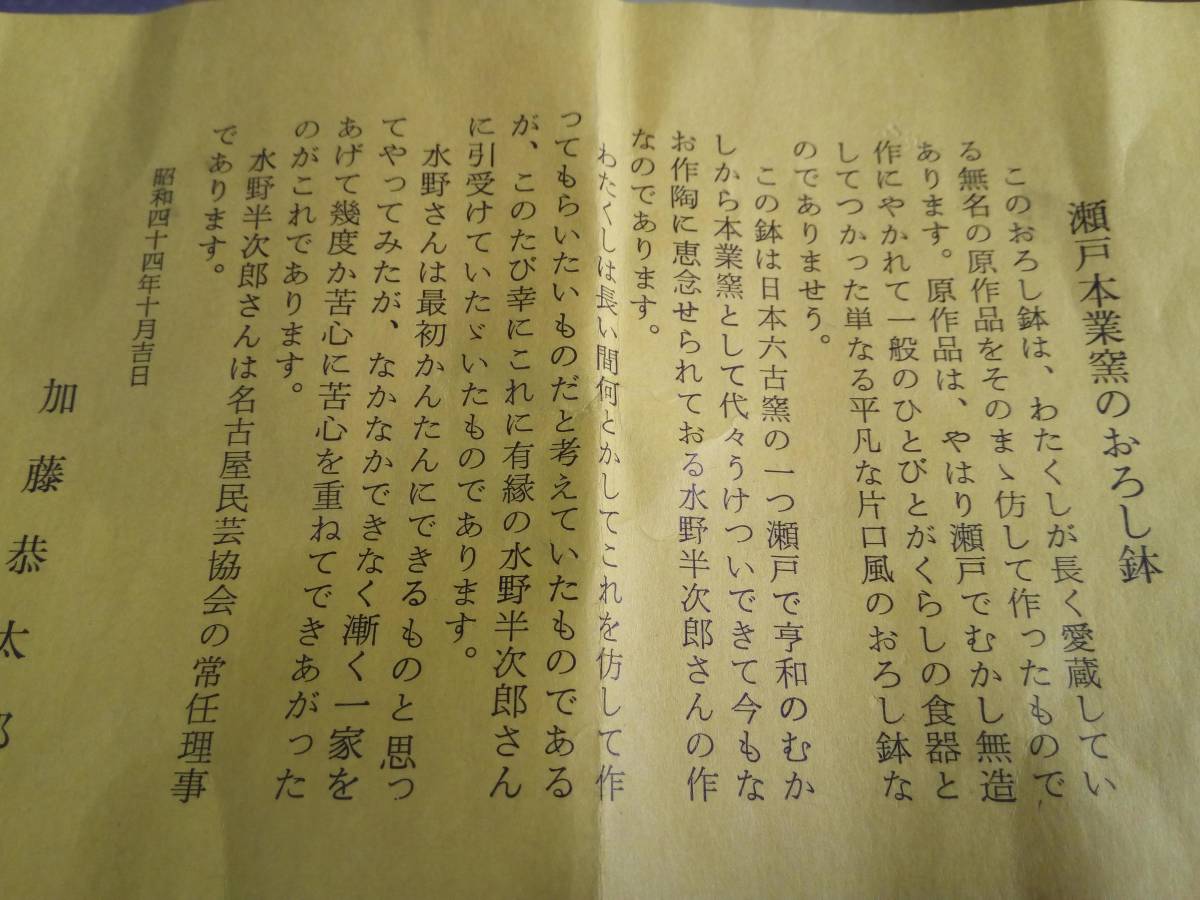 瀬戸本業窯のおろし鉢
このおろし鉢は、わたくしが長く愛蔵してい
る無名の原作品をそのまゝ仿して作ったもので
あります。原作品は、やはり瀬戸でむかし無造
作にやかれて一般のひとびとがくらしの食器と
してつかった単なる平凡な片口風のおろし鉢な
のでありませう。
この鉢は日本六古窯の一つ瀬戸で享和のむか
しから本業窯として代々うけついできて今もな
お作陶に恵念せられておる水野半次郎さんの作
なのであります。
わたくしは長い間何とかしてこれを仿して作
ってもらいたいものだと考えていたものである
が、このたび幸にこれに有縁の水野半次郎さん
に引受けていたゞいたものであります。
水野さんは最初かんたんにできるものと思っ
てやってみたが、なかなかできなく漸く一家を
あげて幾度か苦心に苦心を重ねてできあがった
のがこれであります。
水野半次郎さんは名古屋民芸協会の常任理事
であります。
昭和四十四年十月吉日
加藤恭太郎